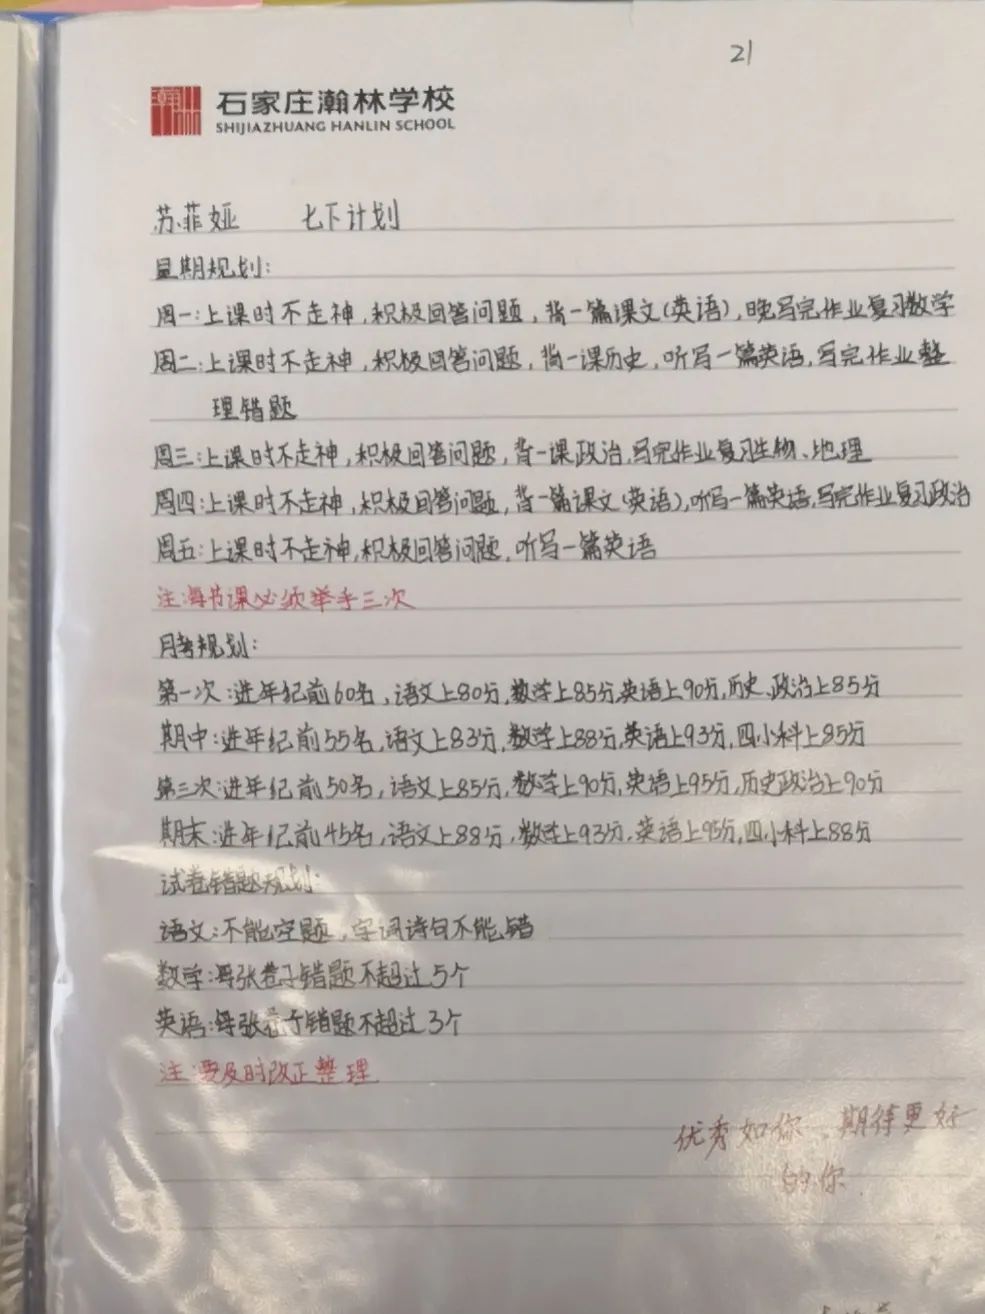 21
石家庄瀚林学校
SHIJIAZHUANG HANLIN SCHOOL
苏菲娅 七下计划
星期规划:
周一:上课时不走神,积极回答问题,背一篇课文(英语),晚写完作业复习数学
周二:上课时不走神,积极回答问题,背一课历史,听写一篇英语,写完作业整
理错题
周三:上课时不走神,积极回答问题,背一课政治,写完作业复习生物、地理
周四:上课时不走神,积极回答问题,背一篇课文(英语),听写一篇英语,写完作业复习政治
周五:上课时不走神,积极回答问题,听写一篇英语
注:每节课必须举手三次
月考规划:
第一次:进年纪前60名,语文上80分,数学上85分,英语上90分,历史、政治上85分
期中:进年纪前55名,语文上83分,数学上88分,英语上93分,四小科上85分
第三次:进年纪前50名,语文上85分,数学上90分,英语上95分,历史政治上90分
期末:进年纪前45名,语文上88分,数学上93分,英语上95分,四小科上88分
试卷错题规划:
语文:不能空题,字词诗句不能错
数学:每张卷子错题不超过5个
英语:每张卷子错题不超过3个
注:要及时改正整理
优秀如你,期待更好
的你